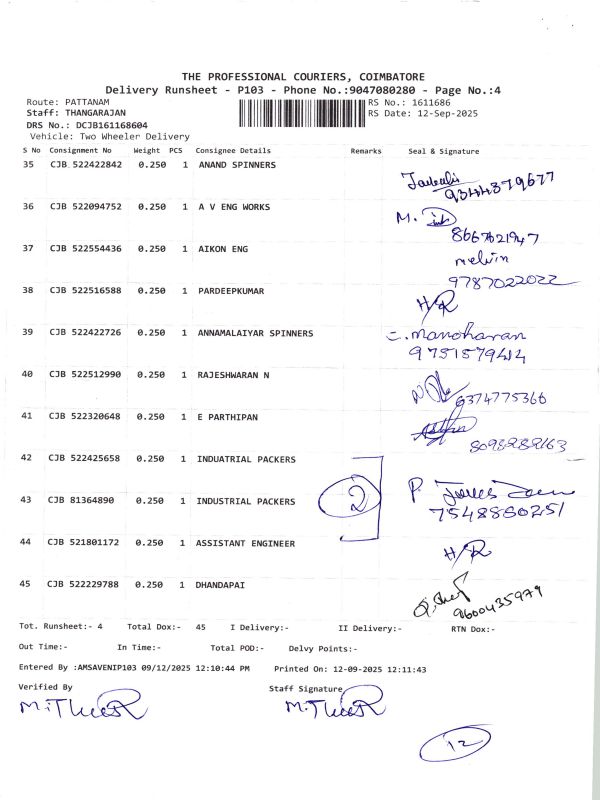 THE PROFESSIONAL COURIERS, COIMBATORE
Delivery Runsheet - P103 - Phone No.:9047080280 - Page No.:4
Route: PATTANAM
RS No.: 1611686
Staff: THANGARAJAN
RS Date: 12-Sep-2025
DRS No.: DCJB161168604
Vehicle: Two Wheeler Delivery
S No Consignment No Weight PCS Consignee Details Remarks Seal & Signature
35 CJB 522422842 0.250 1 ANAND SPINNERS
9344379677
36 CJB 522094752 0.250 1 A V ENG WORKS M.
8667021947
37 CJB 522554436 0.250 1 AIKON ENG melvin
9787022022
38 CJB 522516588 0.250 1 PARDEEPKUMAR
H/R
39 CJB 522422726 0.250 1 ANNAMALAIYAR SPINNERS C. manoharan
9751579414
40 CJB 522512990 0.250 1 RAJESHWARAN N
6374775366
41 CJB 522320648 0.250 1 E PARTHIPAN
8098282163
42 CJB 522425658 0.250 1 INDUATRIAL PACKERS
43 CJB 81364890 0.250 1 INDUSTRIAL PACKERS 2 P.
7548860251
44 CJB 521801172 0.250 1 ASSISTANT ENGINEER H/R
45 CJB 522229788 0.250 1 DHANDAPAI
9600435979
Tot. Runsheet:- 4 Total Dox:- 45 I Delivery:- II Delivery:- RTN Dox:-
Out Time:- In Time:- Total POD:- Delvy Points:-
Entered By :AMSAVENIP103 09/12/2025 12:10:44 PM Printed On: 12-09-2025 12:11:43
Verified By Staff Signature
12